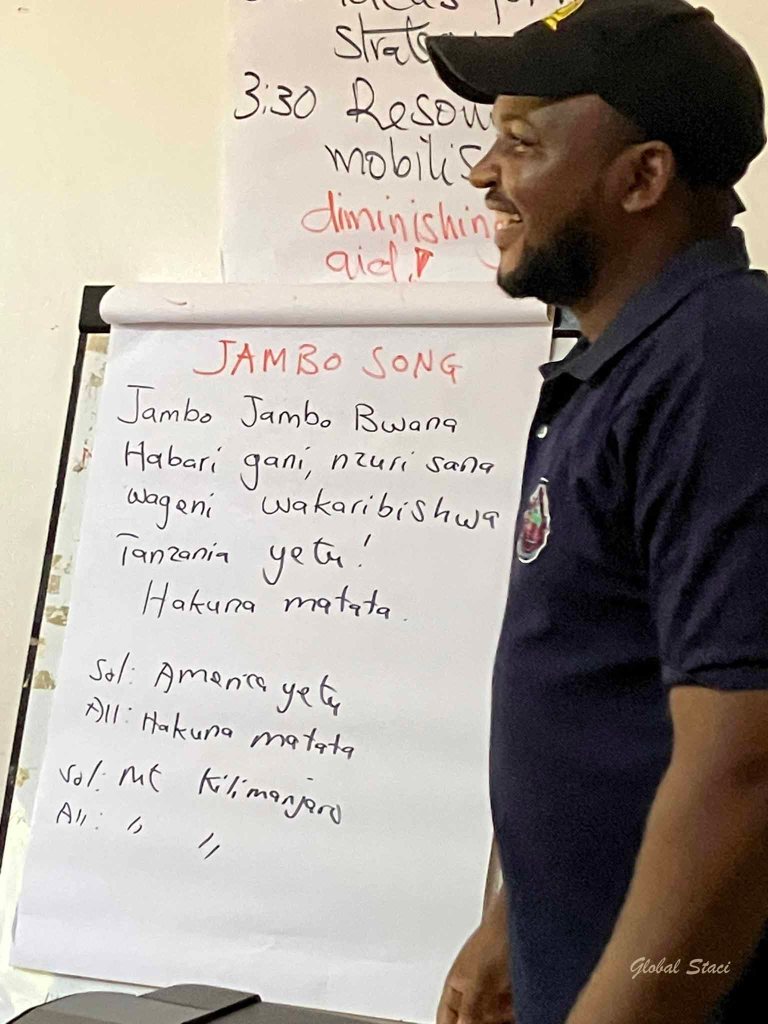 strate
3:30 Resou
mobilis
diminishing
aid,
JAMBO SONG
Jambo Jambo Bwana
Habari gani, nzuri sana
wageni wakaribishwa
Tanzania yetu!
Hakuna matata.
Sol: America yetu
All: Hakuna matata
Sol: Mt Kilimanjaro
All: " "
Global Staci